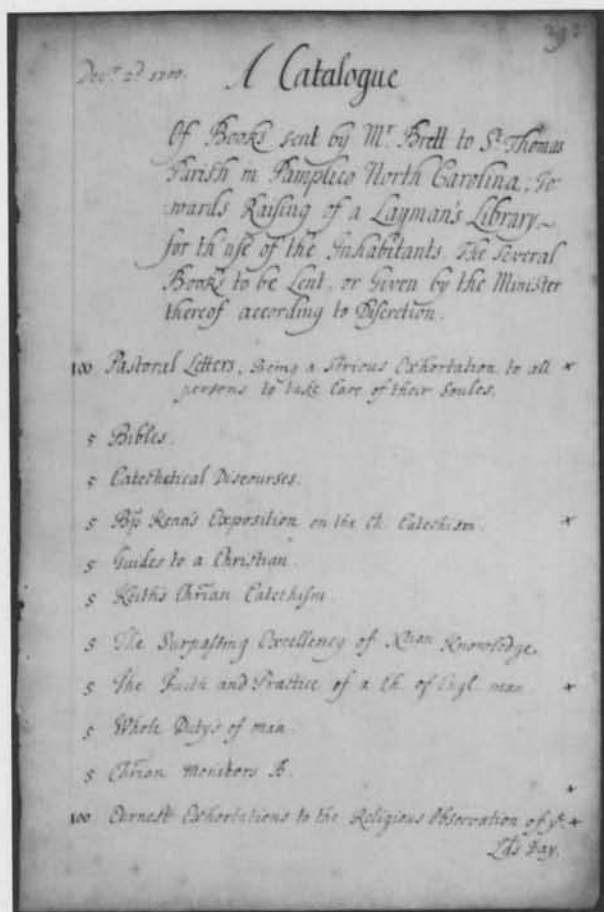 Decr. 2d. 1700.
A Catalogue
Of Books sent by Mr. Brett to St. Thomas
Parish in Pamplico North Carolina, To-
wards Raising of a Layman's Library
for th'use of the Inhabitants. The Several
Books to be Lent, or Given by the Minister
thereof according to Discretion.
100 Pastoral Letters, Being a Serious Exhortation to all x
persons to take Care of their Soules.
5 Bibles.
5 Catechetical Discourses.
5 Bp Kenn's Exposition on the Ch. Catechism. x
5 Guides to a Christian.
5 Keith's Chrian Catechism
5 The Surpassing Excellency of Xtian Knowledge.
5 The Faith and Practice of a Ch. of Engl. man x
5 Whole Duty's of man.
5 Chrian Monitors B.
x
100 Earnest Exhortations to the Religious Observation of ye. x
Lds Day.